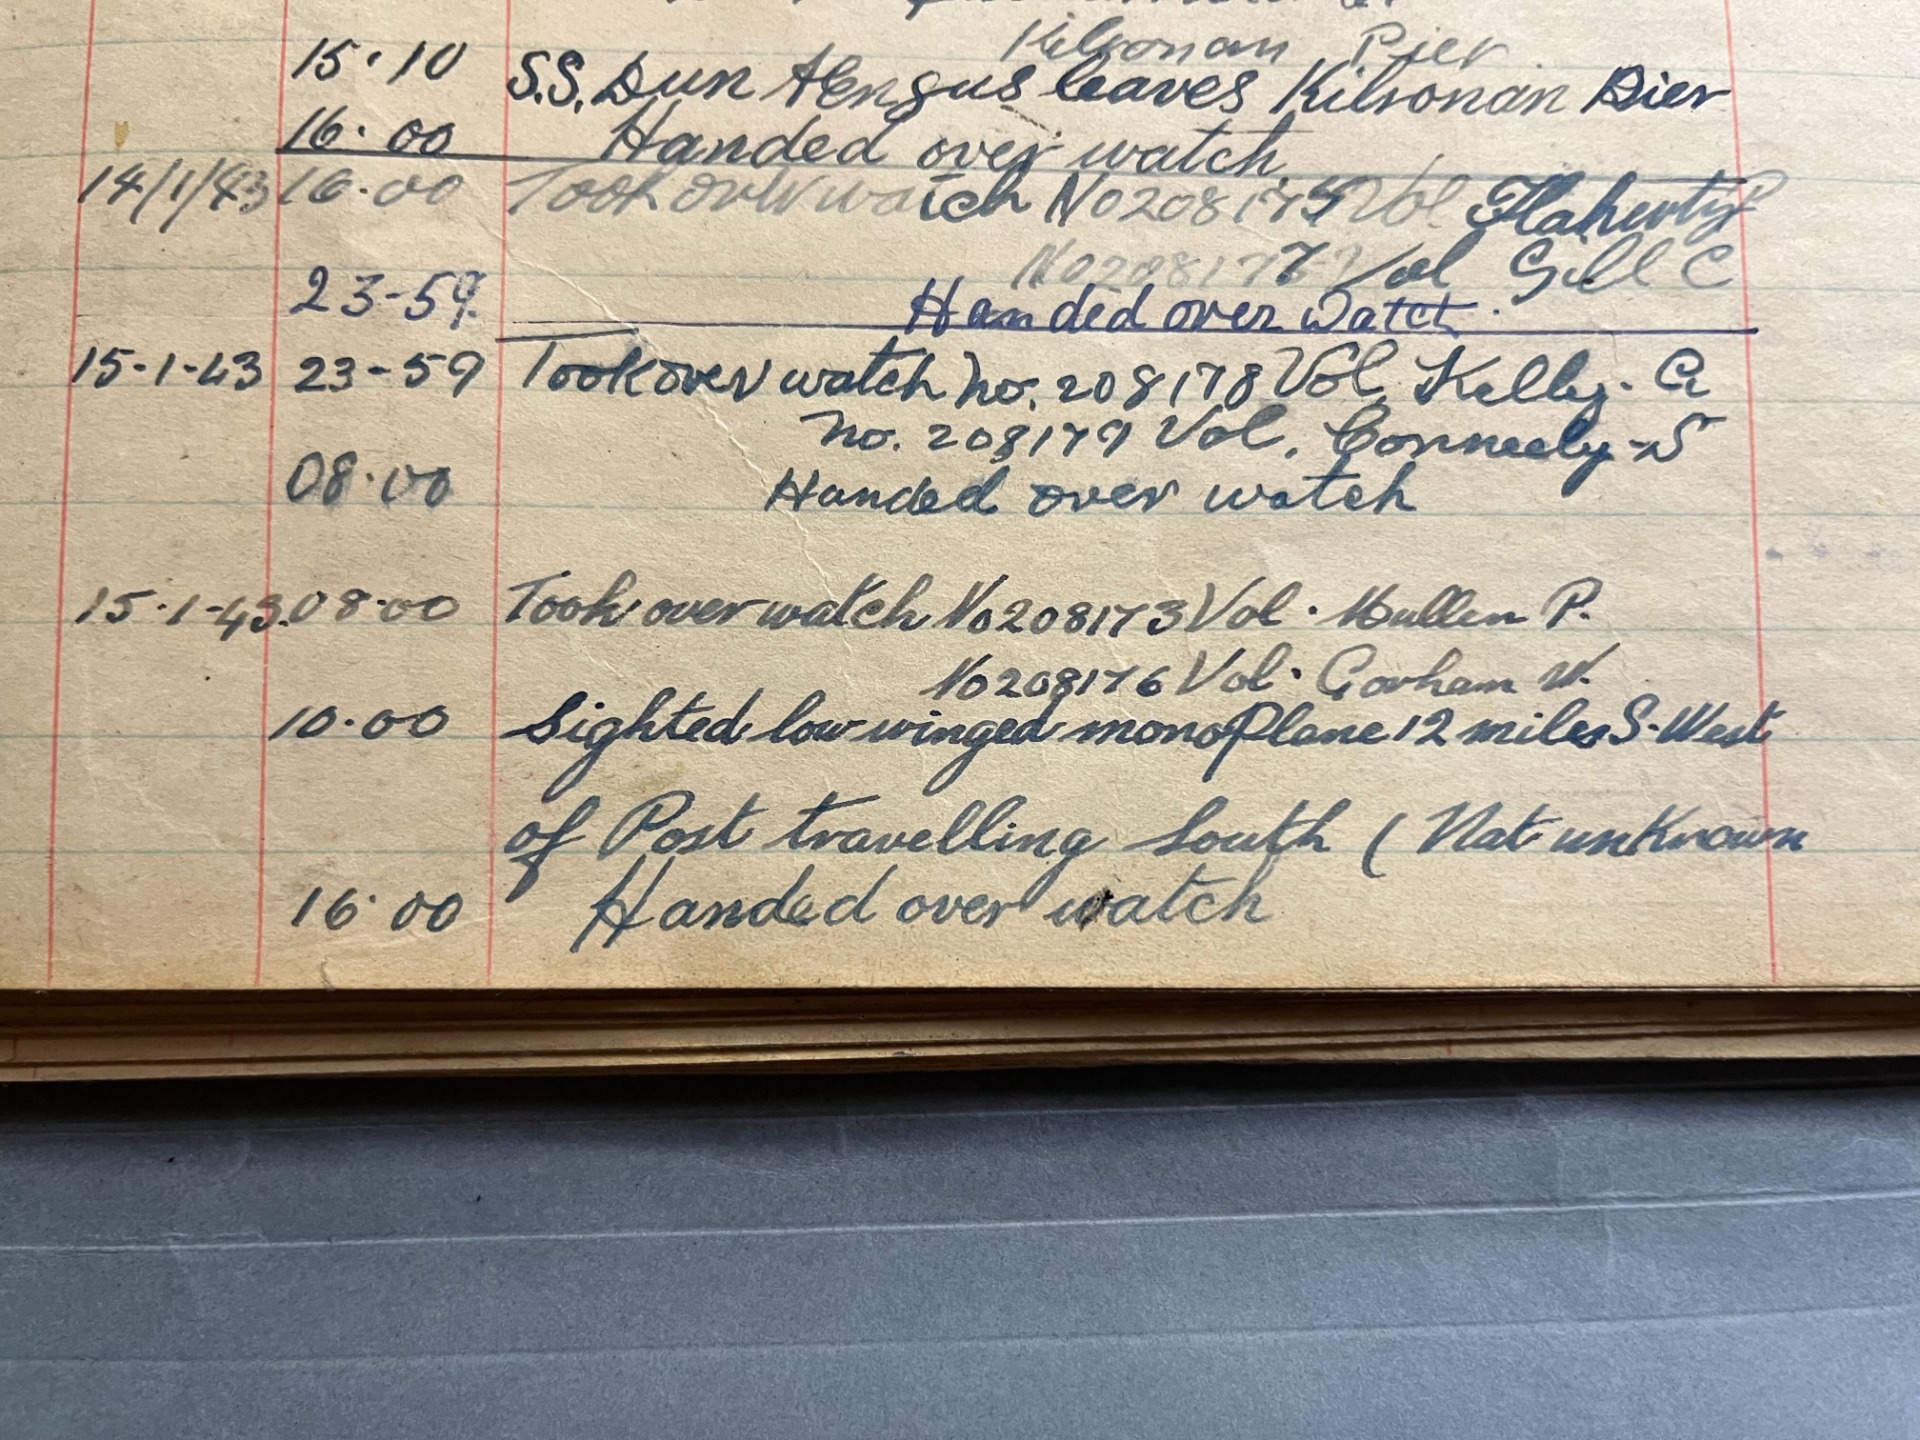 Kilronan Pier
15.10 S.S. Dun Aengus leaves Kilronan Pier
16.00 Handed over watch.
14/1/43 16.00 Took over watch No 208175 Vol Flaherty P
Vol Gill C
23-59. Handed over Watch.
15-1-43 23-59 Took over watch No. 208178 Vol. Kelly. C
No. 208179 Vol. Conneely - S
08.00 Handed over watch
15.1-43. 08.00 Took over watch No 208173 Vol. Mullen P.
No 208176 Vol. Gorham W.
10.00 Sighted low winged monoPlane 12 miles S-West
of Post travelling South ( Nat unknown
16.00 Handed over watch